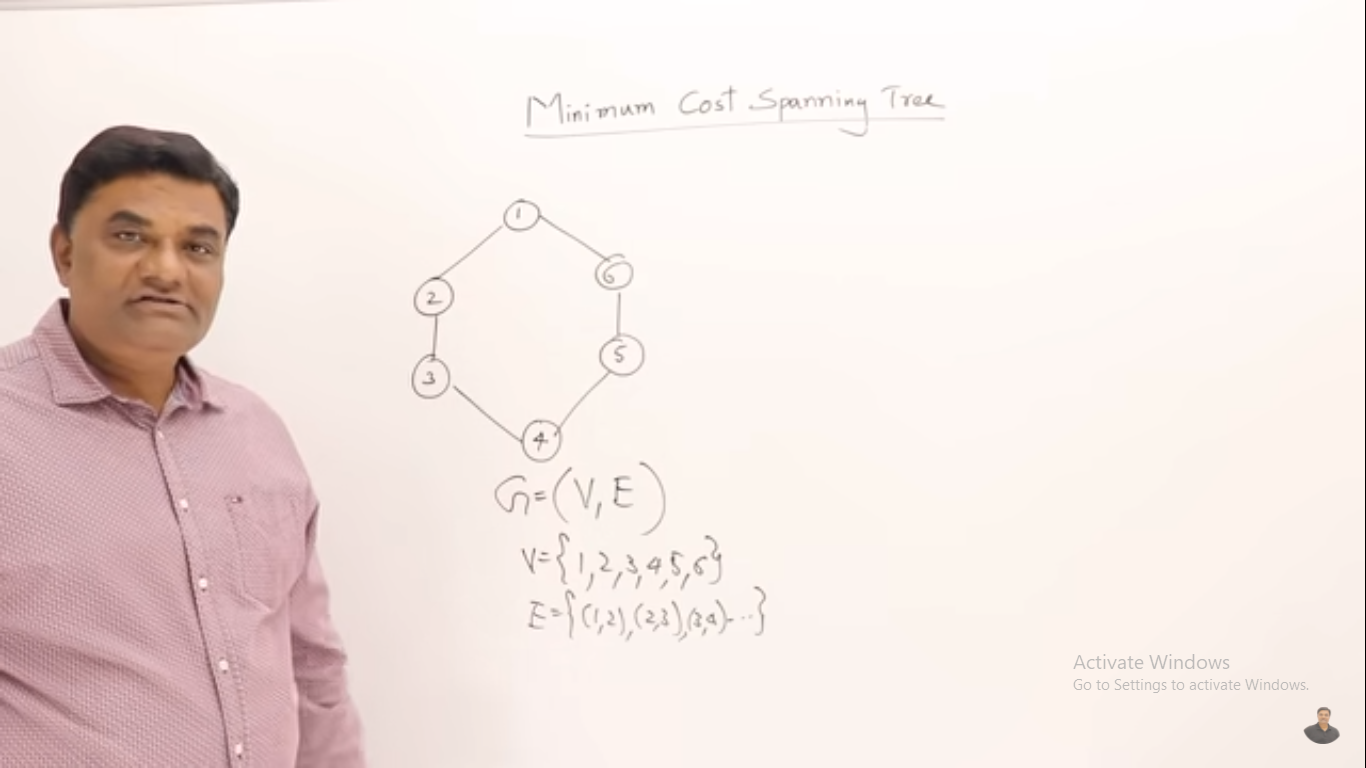 Minimum Cost Spanning Tree
1
6
2
5
3
4
G=(V,E)
V={1,2,3,4,5,6}
E={(1,2),(2,3),(3,4)-··}
Activate Windows
Go to Settings to activate Windows.